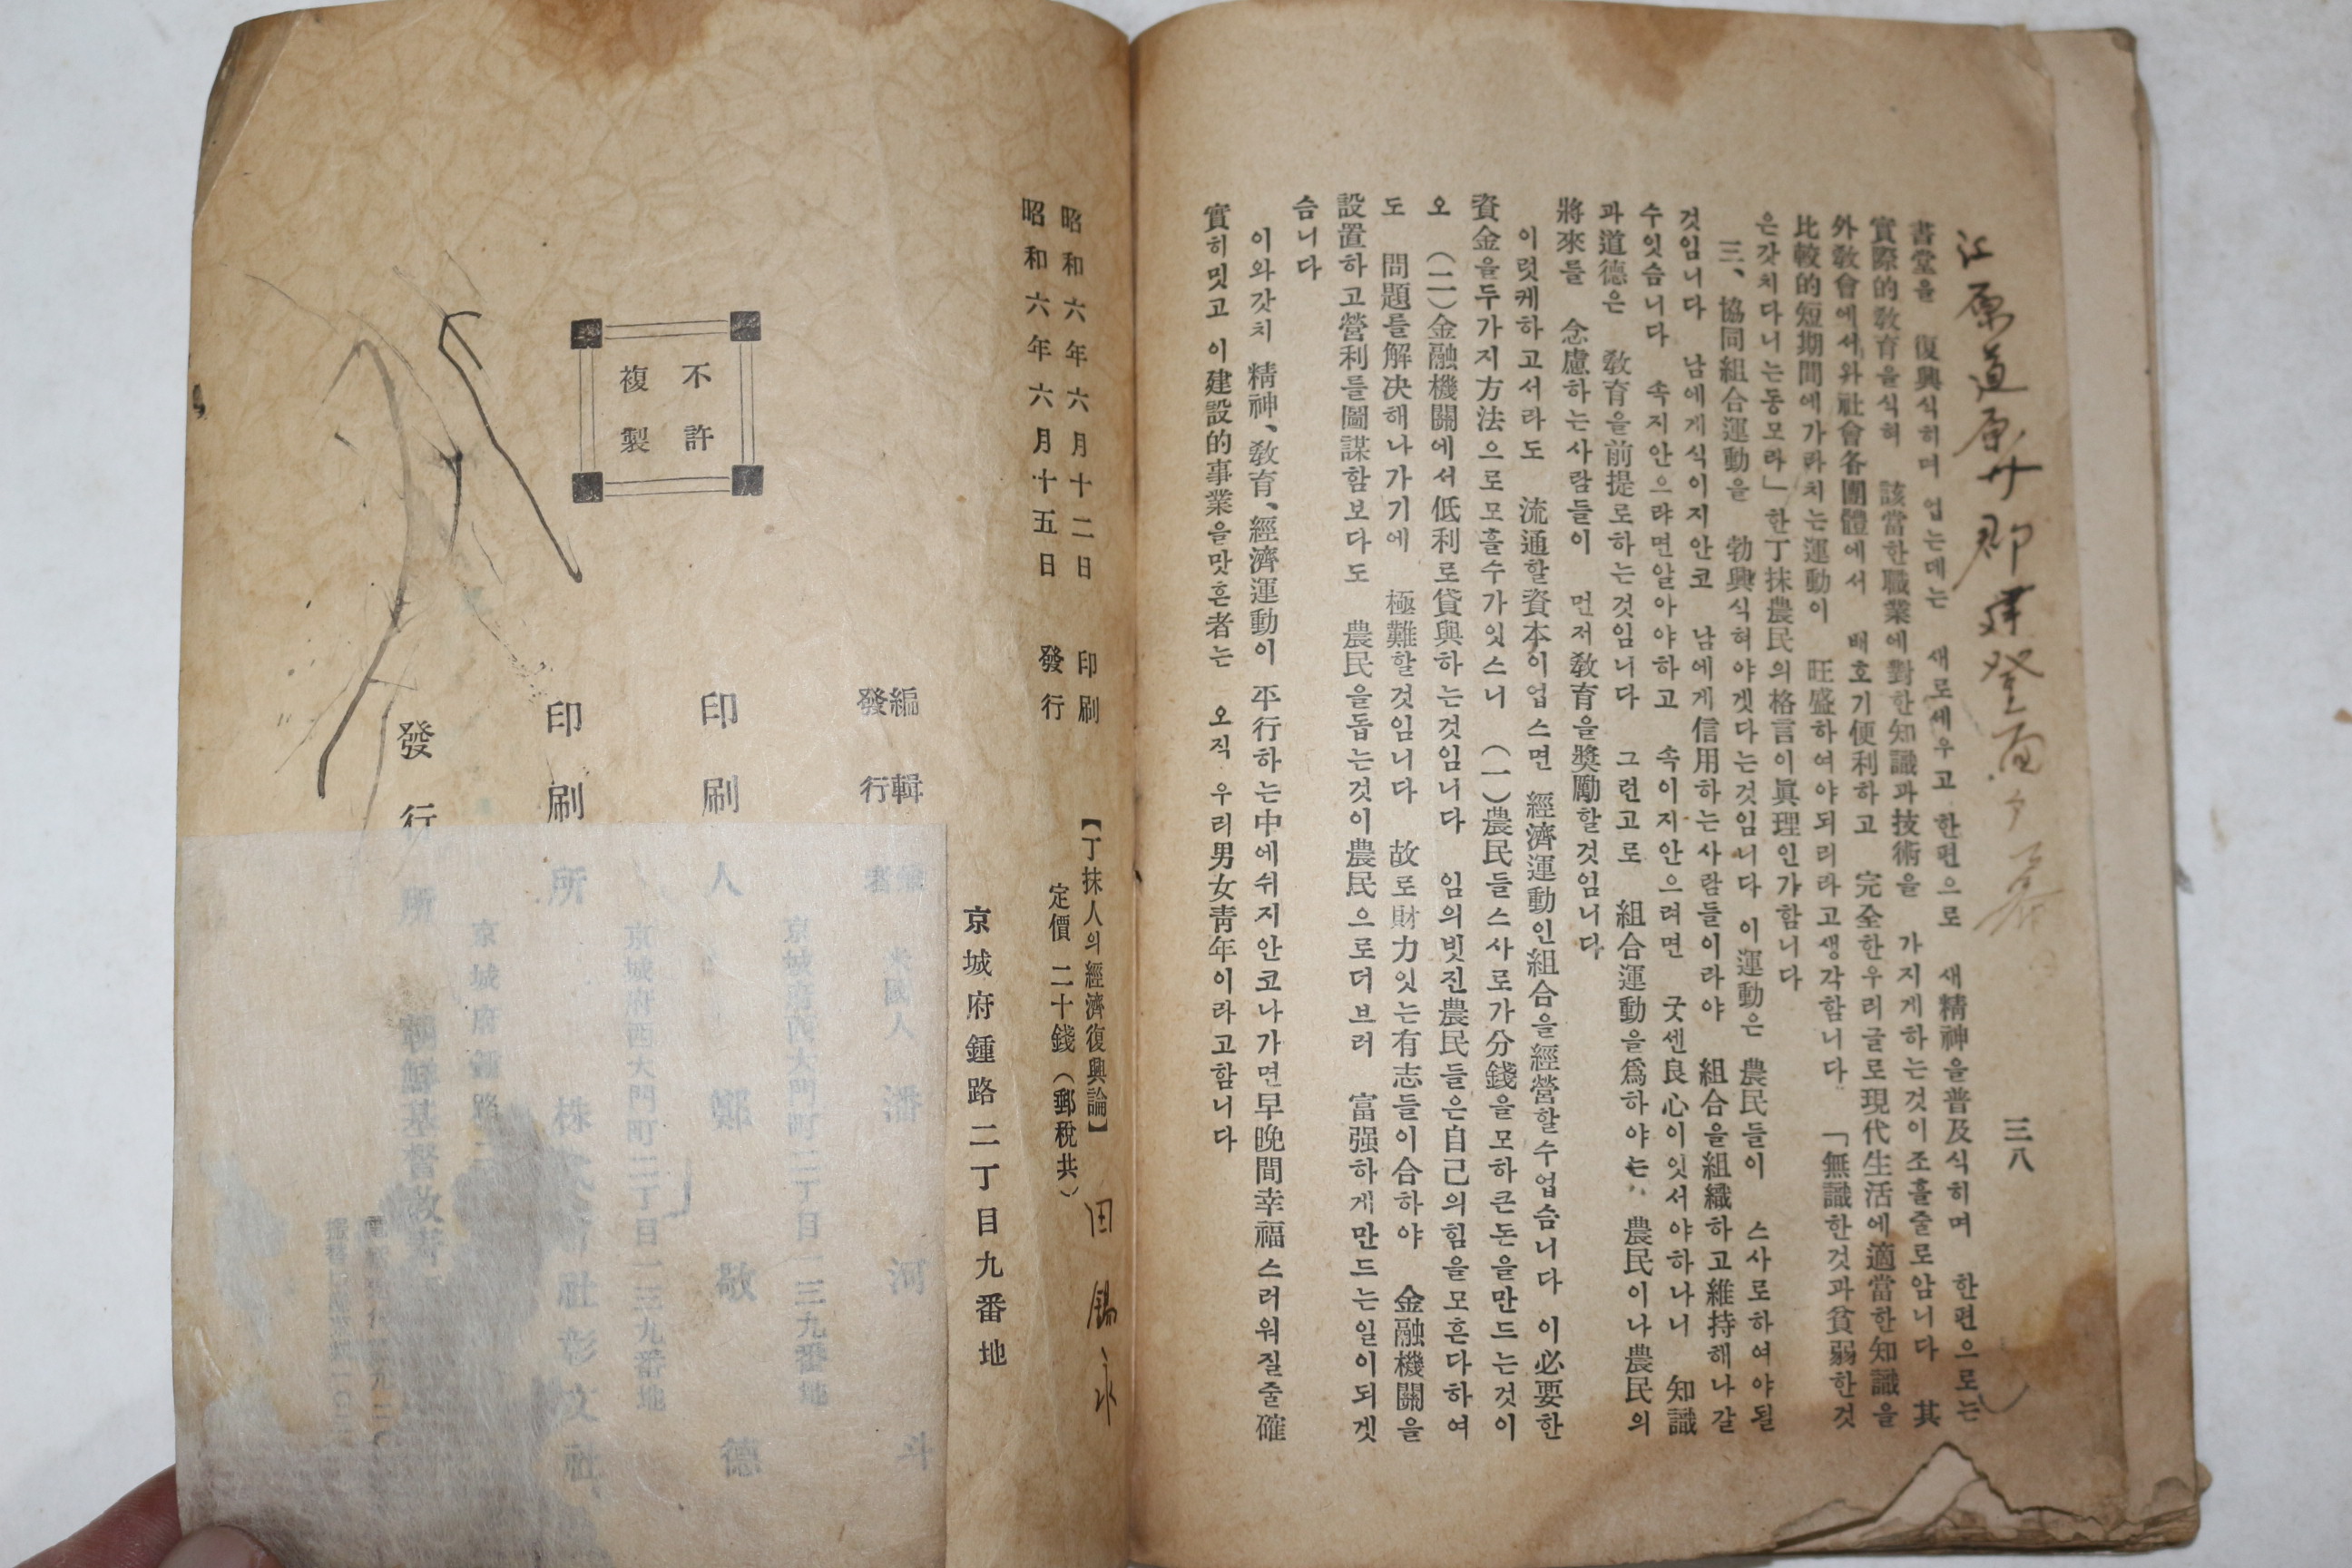 江原道原州郡建登面
三八
書堂을 復興식히며 업는데는 새로세우고 한편으로 새精神을普及식히며 한편으로는
實際的敎育을식혀 該當한職業에對한知識과技術을 가지게하는것이조흘줄로암니다 其
外敎會에서와社會各團體에서 배호기便利하고 完全한우리글로現代生活에適當한知識을
比較的短期間에가라치는運動이 旺盛하여야되리라고생각함니다 「無識한것과貧弱한것
은갓치다니는동모라」한丁抹農民의格言이眞理인가함니다
三、協同組合運動을 勃興식혀야겟다는것임니다 이運動은 農民들이 스사로하여야될
것임니다 남에게식이지안코 남에게信用하는사람들이라야 組合을組織하고維持해나갈
수잇슴니다 속지안으랴면알아야하고 속이지안으려면 굿센良心이잇서야하나니 知識
과道德은 敎育을前提로하는것임니다 그런고로 組合運動을爲하야는 農民이나農民의
將來를 念慮하는사람들이 먼저敎育을獎勵할것임니다
이럿케하고서라도 流通할資本이업스면 經濟運動인組合을經營할수업슴니다 이必要한
資金을두가지方法으로모흘수가잇스니 (一)農民들스사로가分錢을모하큰돈을만드는것이
오 (二)金融機關에서低利로貸與하는것임니다 임의빗진農民들은自己의힘을모흔다하여
도 問題를解决해나가기에 極難할것임니다 故로財力잇는有志들이合하야 金融機關을
設置하고營利를圖謀함보다도 農民을돕는것이農民으로더브러 富强하게만드는일이되겟
슴니다
이와갓치 精神、敎育、經濟運動이 平行하는中에쉬지안코나가면早晩間幸福스러워질줄確
實히밋고 이建設的事業을맛흔者는 오직 우리男女靑年이라고함니다
昭和六年六月十二日 印刷
昭和六年六月十五日 發行
【丁抹人의經濟復興論】
定價 二十錢(郵稅共)
田錫永
京城府鍾路二丁目九番地
編輯兼
發行者 米國人 潘河斗
京城府西大門町二丁目一三九番地
印刷人 鄭敬德
京城府西大門町二丁目一三九番地
印刷所 株式會社彰文社
京城府鍾路二
發行所 朝鮮基督敎靑
不許
複製